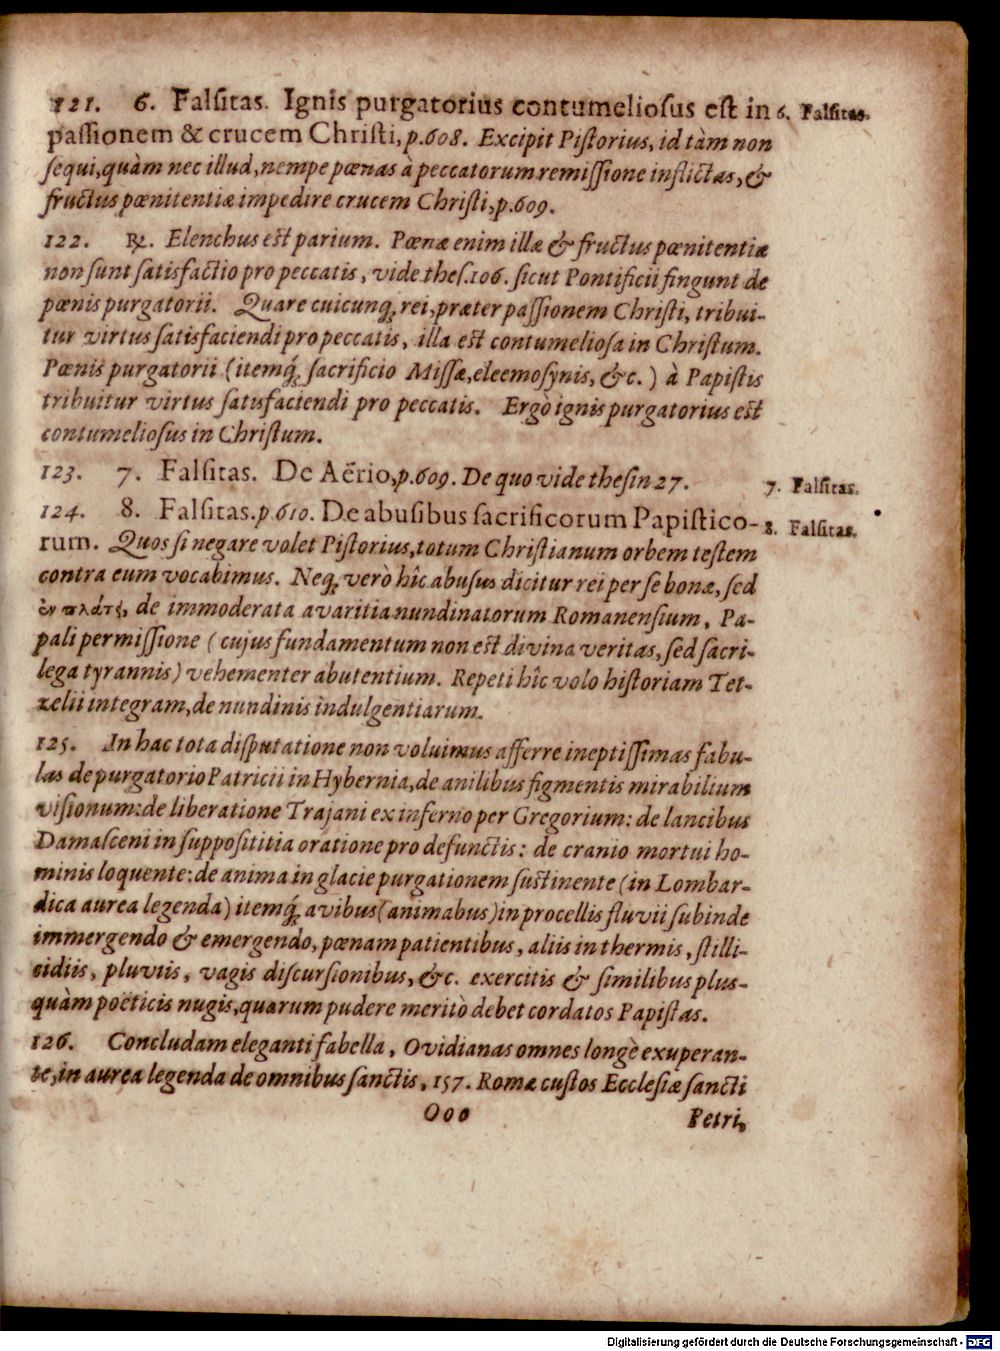 121. 6. Falsitas. Ignis purgatorius contumeliosus est in 6. Falsitas.
passionem & crucem Christi, p.608. Excipit Pistorius, id tàm non
sequi, quàm nec illud, nempe pœnas à peccatorum remissione inflictas, &
fructus pœnitentiæ impedire crucem Christi, p.609.
122. ℞. Elenchus est parium. Pœnæ enim illæ & fructus pœnitentiæ
non sunt satisfactio pro peccatis, vide thes.106. sicut Pontificii fingunt de
pœnis purgatorii. Quare cuicunq; rei, præter passionem Christi, tribui-
tur virtus satisfaciendi pro peccatis, illa est contumeliosa in Christum.
Pœnis purgatorii (itemq́; sacrificio Missæ, eleemosynis, &c.) à Papistis
tribuitur virtus satisfaciendi pro peccatis. Ergò ignis purgatorius est
contumeliosus in Christum.
123. 7. Falsitas. De Aërio, p.609. De quo vide thesin 27. 7. Falsitas.
124. 8. Falsitas. p.610. De abusibus sacrificorum Papistico- 8. Falsitas.
rum. Quos si negare volet Pistorius, totum Christianum orbem testem
contra eum vocabimus. Neq; verò hîc abusus dicitur rei per se bonæ, sed
ἐν πλάτει, de immoderata avaritia nundinatorum Romanensium, Pa-
pali permissione (cujus fundamentum non est divina veritas, sed sacri-
lega tyrannis) vehementer abutentium. Repeti hîc volo historiam Tet-
zelii integram, de nundinis indulgentiarum.
125. In hac tota disputatione non voluimus afferre ineptissimas fabu-
las de purgatorio Patricii in Hybernia, de anilibus figmentis mirabilium
visionum: de liberatione Trajani ex inferno per Gregorium: de lancibus
Damasceni in supposititia oratione pro defunctis: de cranio mortui ho-
minis loquente: de anima in glacie purgationem sustinente (in Lombar-
dica aurea legenda) itemq́; avibus (animabus) in procellis fluvii subinde
immergendo & emergendo, pœnam patientibus, aliis in thermis, stilli-
cidiis, pluviis, vagis discursionibus, &c. exercitis & similibus plus-
quàm poëticis nugis, quarum pudere meritò debet cordatos Papistas.
126. Concludam eleganti fabella, Ovidianas omnes longè exuperan-
te, in aurea legenda de omnibus sanctis, 157. Romæ custos Ecclesiæ sancti
Ooo Petri,
Digitalisierung gefördert durch die Deutsche Forschungsgemeinschaft - DFG